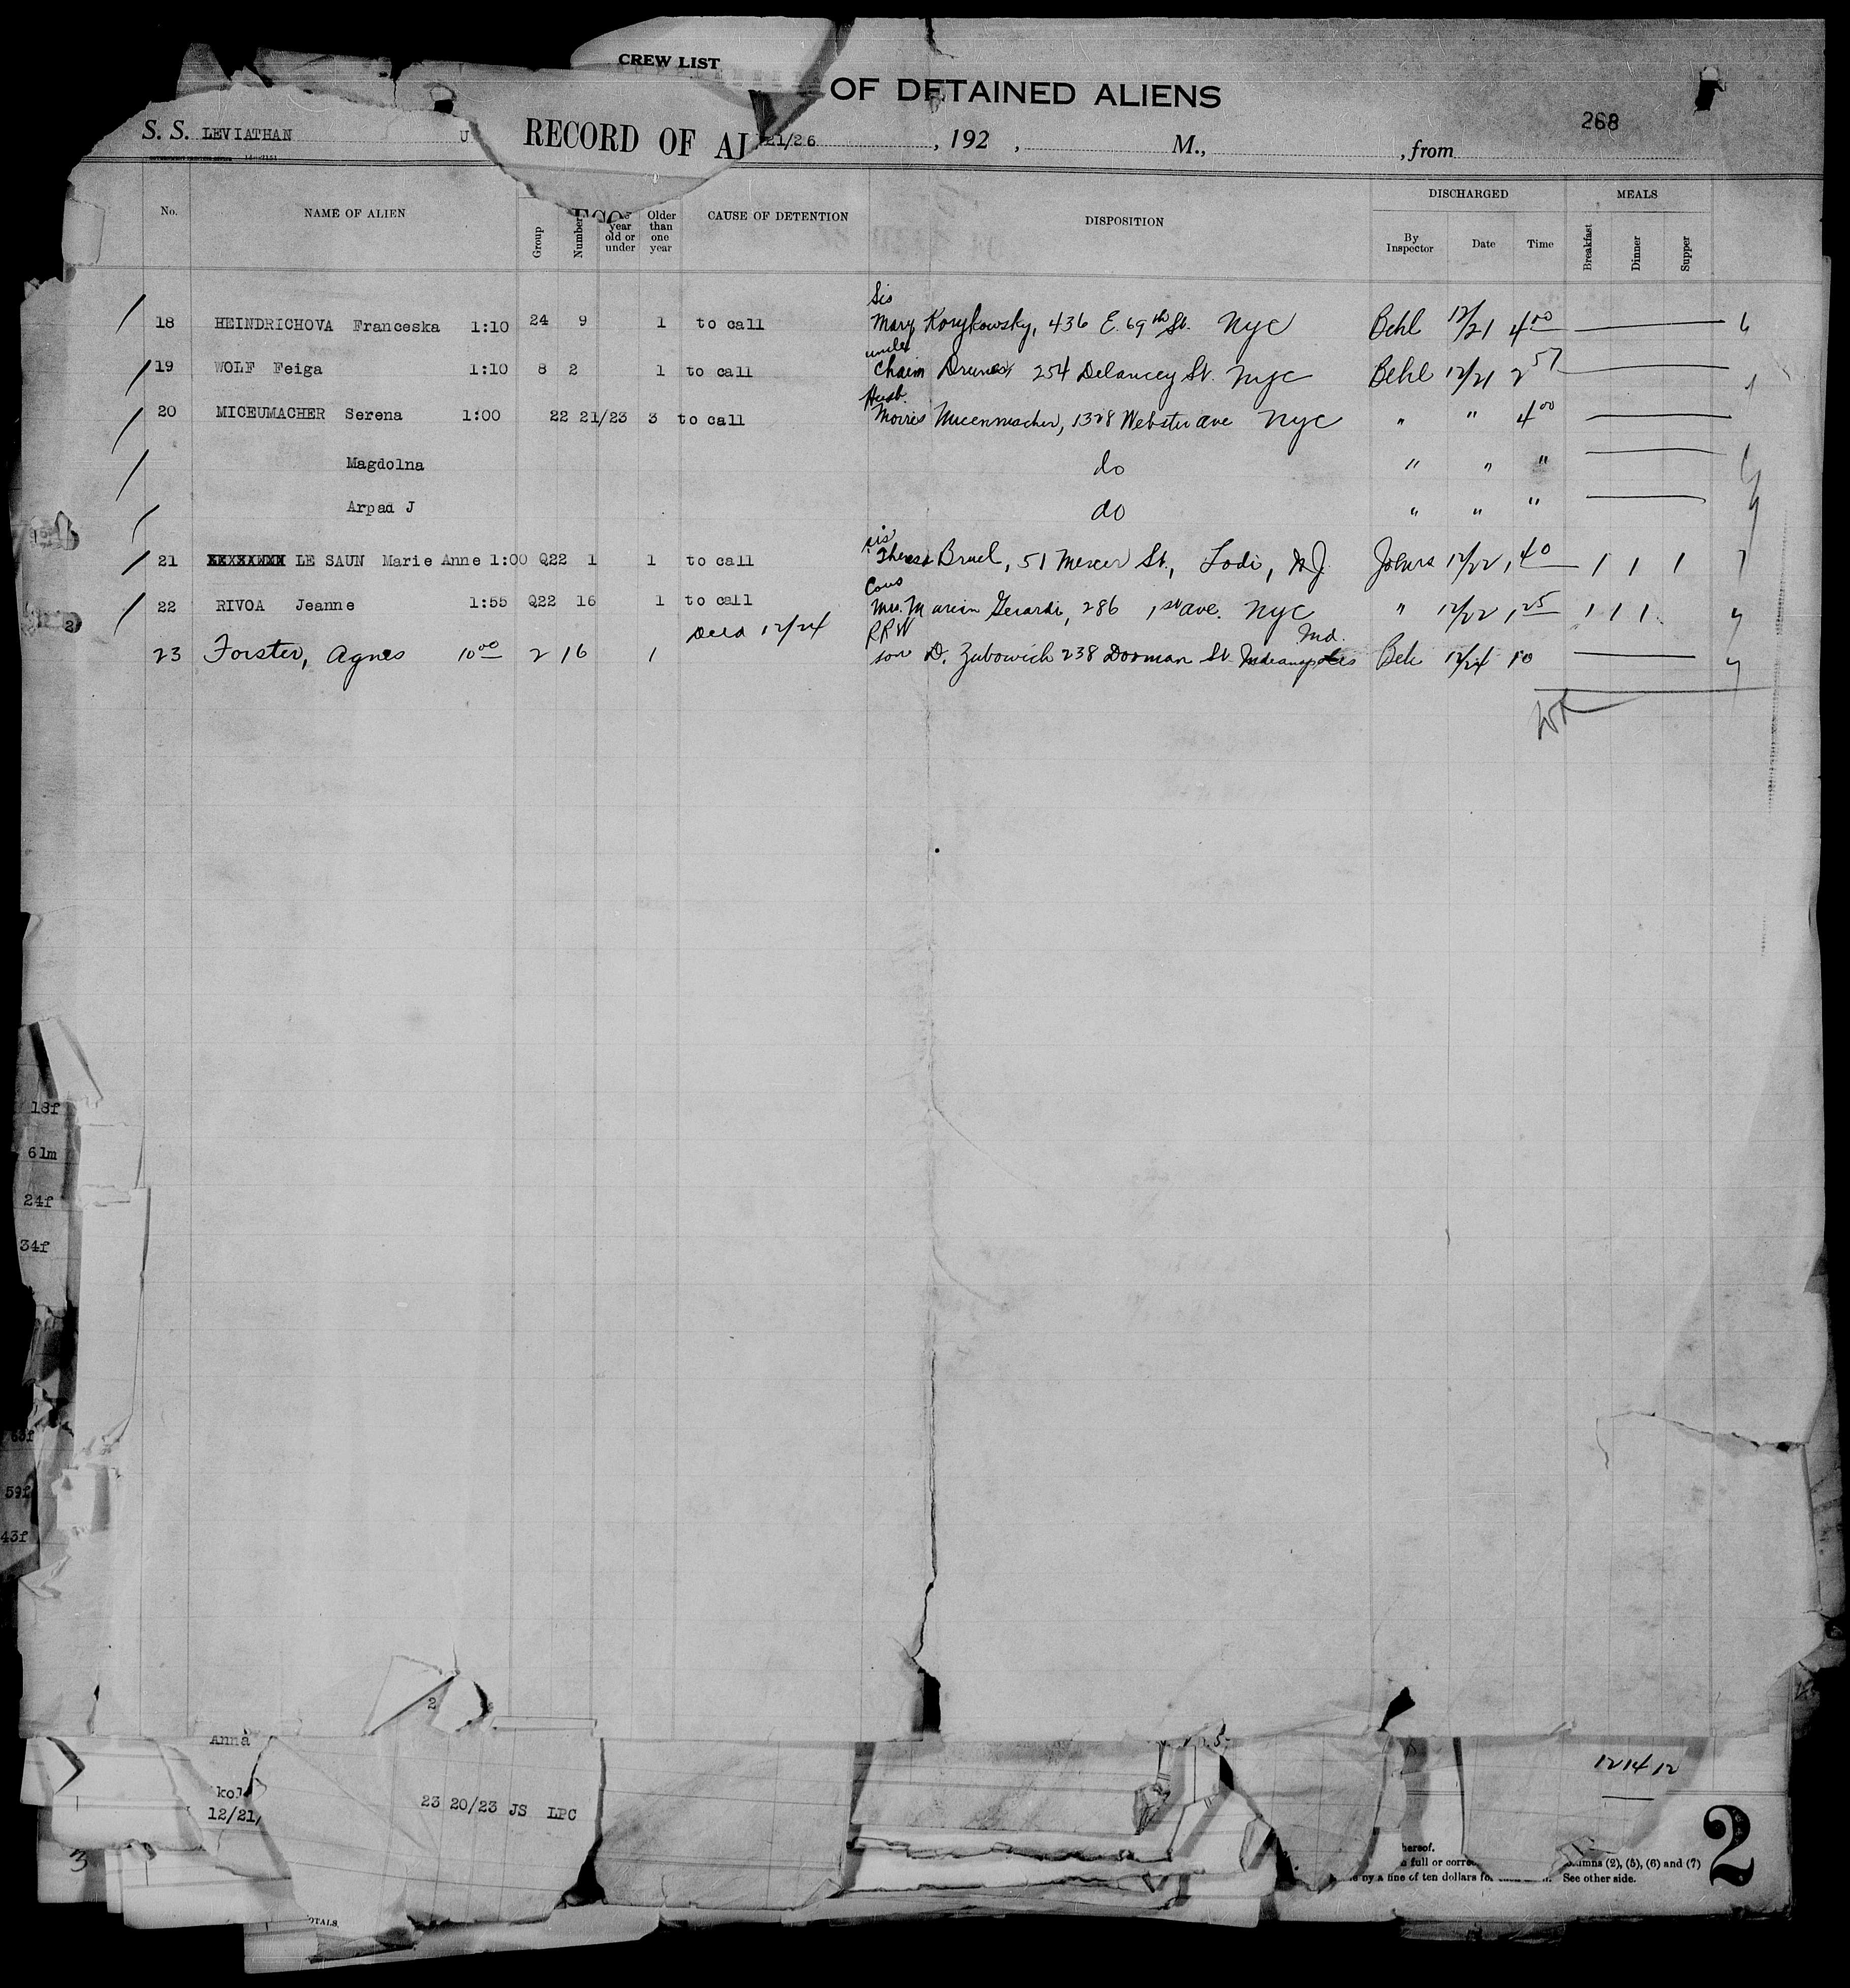 CREW LIST
OF DETAINED ALIENS
268
S. S. LEVIATHAN U RECORD OF AL 21/26 , 192 , M., , from
No. NAME OF ALIEN Group Number year old or under Older than one year CAUSE OF DETENTION DISPOSITION DISCHARGED By Inspector Date Time MEALS Breakfast Dinner Supper
Sis
18 HEINDRICHOVA Franceska 1:10 24 9 1 to call Mary Korykowsky, 436 E. 69th St. NYC Behl 12/21 4 00
uncle
19 WOLF Feiga 1:10 8 2 1 to call Chaim 254 Delancey St. NYC Behl 12/21 2 57
Husb.
20 MICEUMACHER Serena 1:00 22 21/23 3 to call Morris Miceumacher, 1328 Webster ave NYC " " 4 00
Magdolna do " " "
Arpad J do " " "
sis
21 LE SAUN Marie Anne 1:00 Q22 1 1 to call Theresa Bruel, 51 Mercer St., Lodi, N.J. 12/22 1 40 1 1 1
Cous
22 RIVOA Jeanne 1:55 Q22 16 1 to call Mrs. Maria Gerardi, 286 1st ave. NYC " 12/22 1 25 1 1 1
12/24 RRW Ind.
23 Forster, Agnes 10 00 2 16 1 son D. Zubowich 238 Dorman St Indianapolis 12/24 10
18f
61m
24f
34f
59f
43f
2
Anna
12 14 12
12/21/
23 20/23 JS LPC
3
hereof.
full or corre
(2), (5), (6) and (7)
by a fine of ten dollars fo
See other side.
2
OTALS